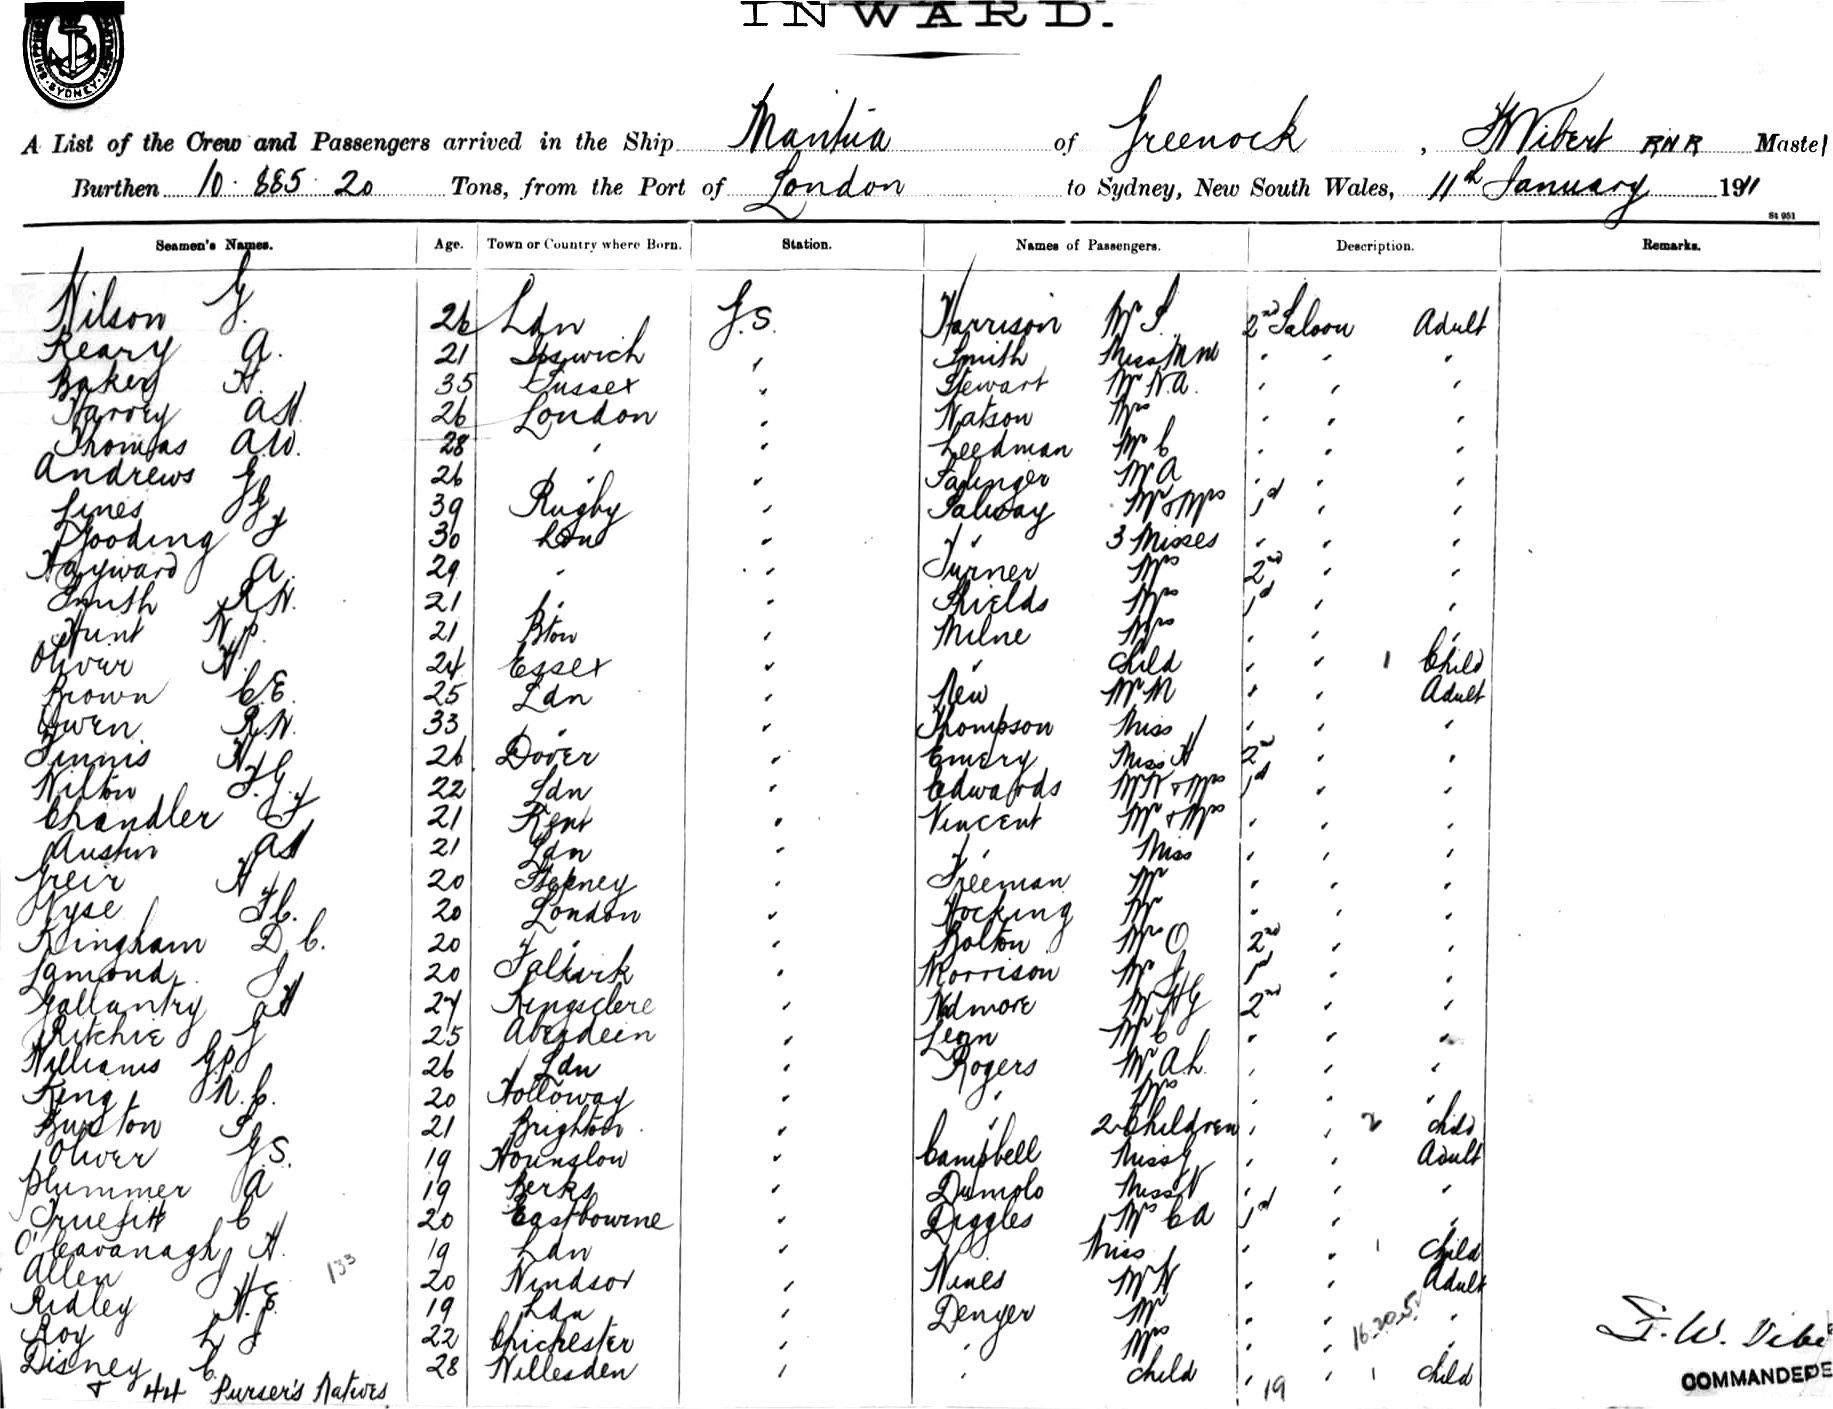 INWARD.
SYDNEY
A List of the Crew and Passengers arrived in the Ship Mantua of Greenock, F W Vibert RNR Master
Burthen 10.885.20 Tons, from the Port of London to Sydney, New South Wales, 11th January 1911
St 951
Seamen's Names. Age. Town or Country where Born. Station. Names of Passengers. Description. Remarks.
Wilson G. 26 Ldn G.S. Harrison Mr S. 2nd Saloon Adult
Reary A. 21 Ipswich " Smith Miss M M " " "
Baker H. 35 Sussex " Stewart Mr N.A. " " "
Harvey A H. 26 London " Watson Mrs " " "
Thomas A.W. 28 " " Leedman Mr C " " "
Andrews G 26 " " Falinger Mr A " " "
Lines 39 Rugby " Salway Mr & Mrs 1st " "
Gooding 30 Ldn " " 3 Misses " " "
Hayward A. 29 " " Turner Mrs 2nd " "
Smith R H. 21 " " Shields Mrs 1st " "
Hunt N P. 21 Bton " Milne Mrs " " "
Oliver H. 24 Essex " " Child " " 1 Child
Brown C.E. 25 Ldn " New Mr M " " Adult
Owen R.W. 33 " " Thompson Miss " " "
Tinnis H 26 Dover " Emery Miss H 2nd " "
Wilton F.G. 22 Ldn " Edwards Mr W & Mrs 1st " "
Chandler 21 Kent " Vincent Mr & Mrs " " "
Austin A H 21 Ldn " " Miss " " "
Greir H 20 Stepney " Freeman Mr " " "
Wyse F C. 20 London " Hocking Mr " " "
Kingham D. C. 20 " " Bolton Mr O 2nd " "
Lamond J 20 Falkirk " Morrison Mr J 1st " "
Gallantry A H 24 Kingsclere " Mr H G 2nd " "
Ritchie G 25 Aberdeen " Leon Mr C " " "
Williams G P. 26 Ldn " Rogers Mr A L. " " "
King N. C. 20 Holloway " " Mrs " " "
Burston 21 Brighton " " 2 Children " " 2 child
Oliver G S. 19 Hounslow " Campbell Miss G " " Adult
Plummer A 19 Berks " Dumolo Miss N " " "
Truefitt C 20 Eastbourne " Diggles Mrs C A 1st " "
O'Cavanagh H. 19 Ldn " Miss " " 1 Child
Allen H E 133 20 Windsor " Wines Mr H " " Adult
Ridley H. E. 19 Ldn " Denyer Mr " " "
Roy L J 22 Chichester " " Mrs " 16.30.5 "
Disney C. 28 Willesden " " child " 1 child
& 44 Purser's Natives 19
F. W. Vibe
COMMANDER